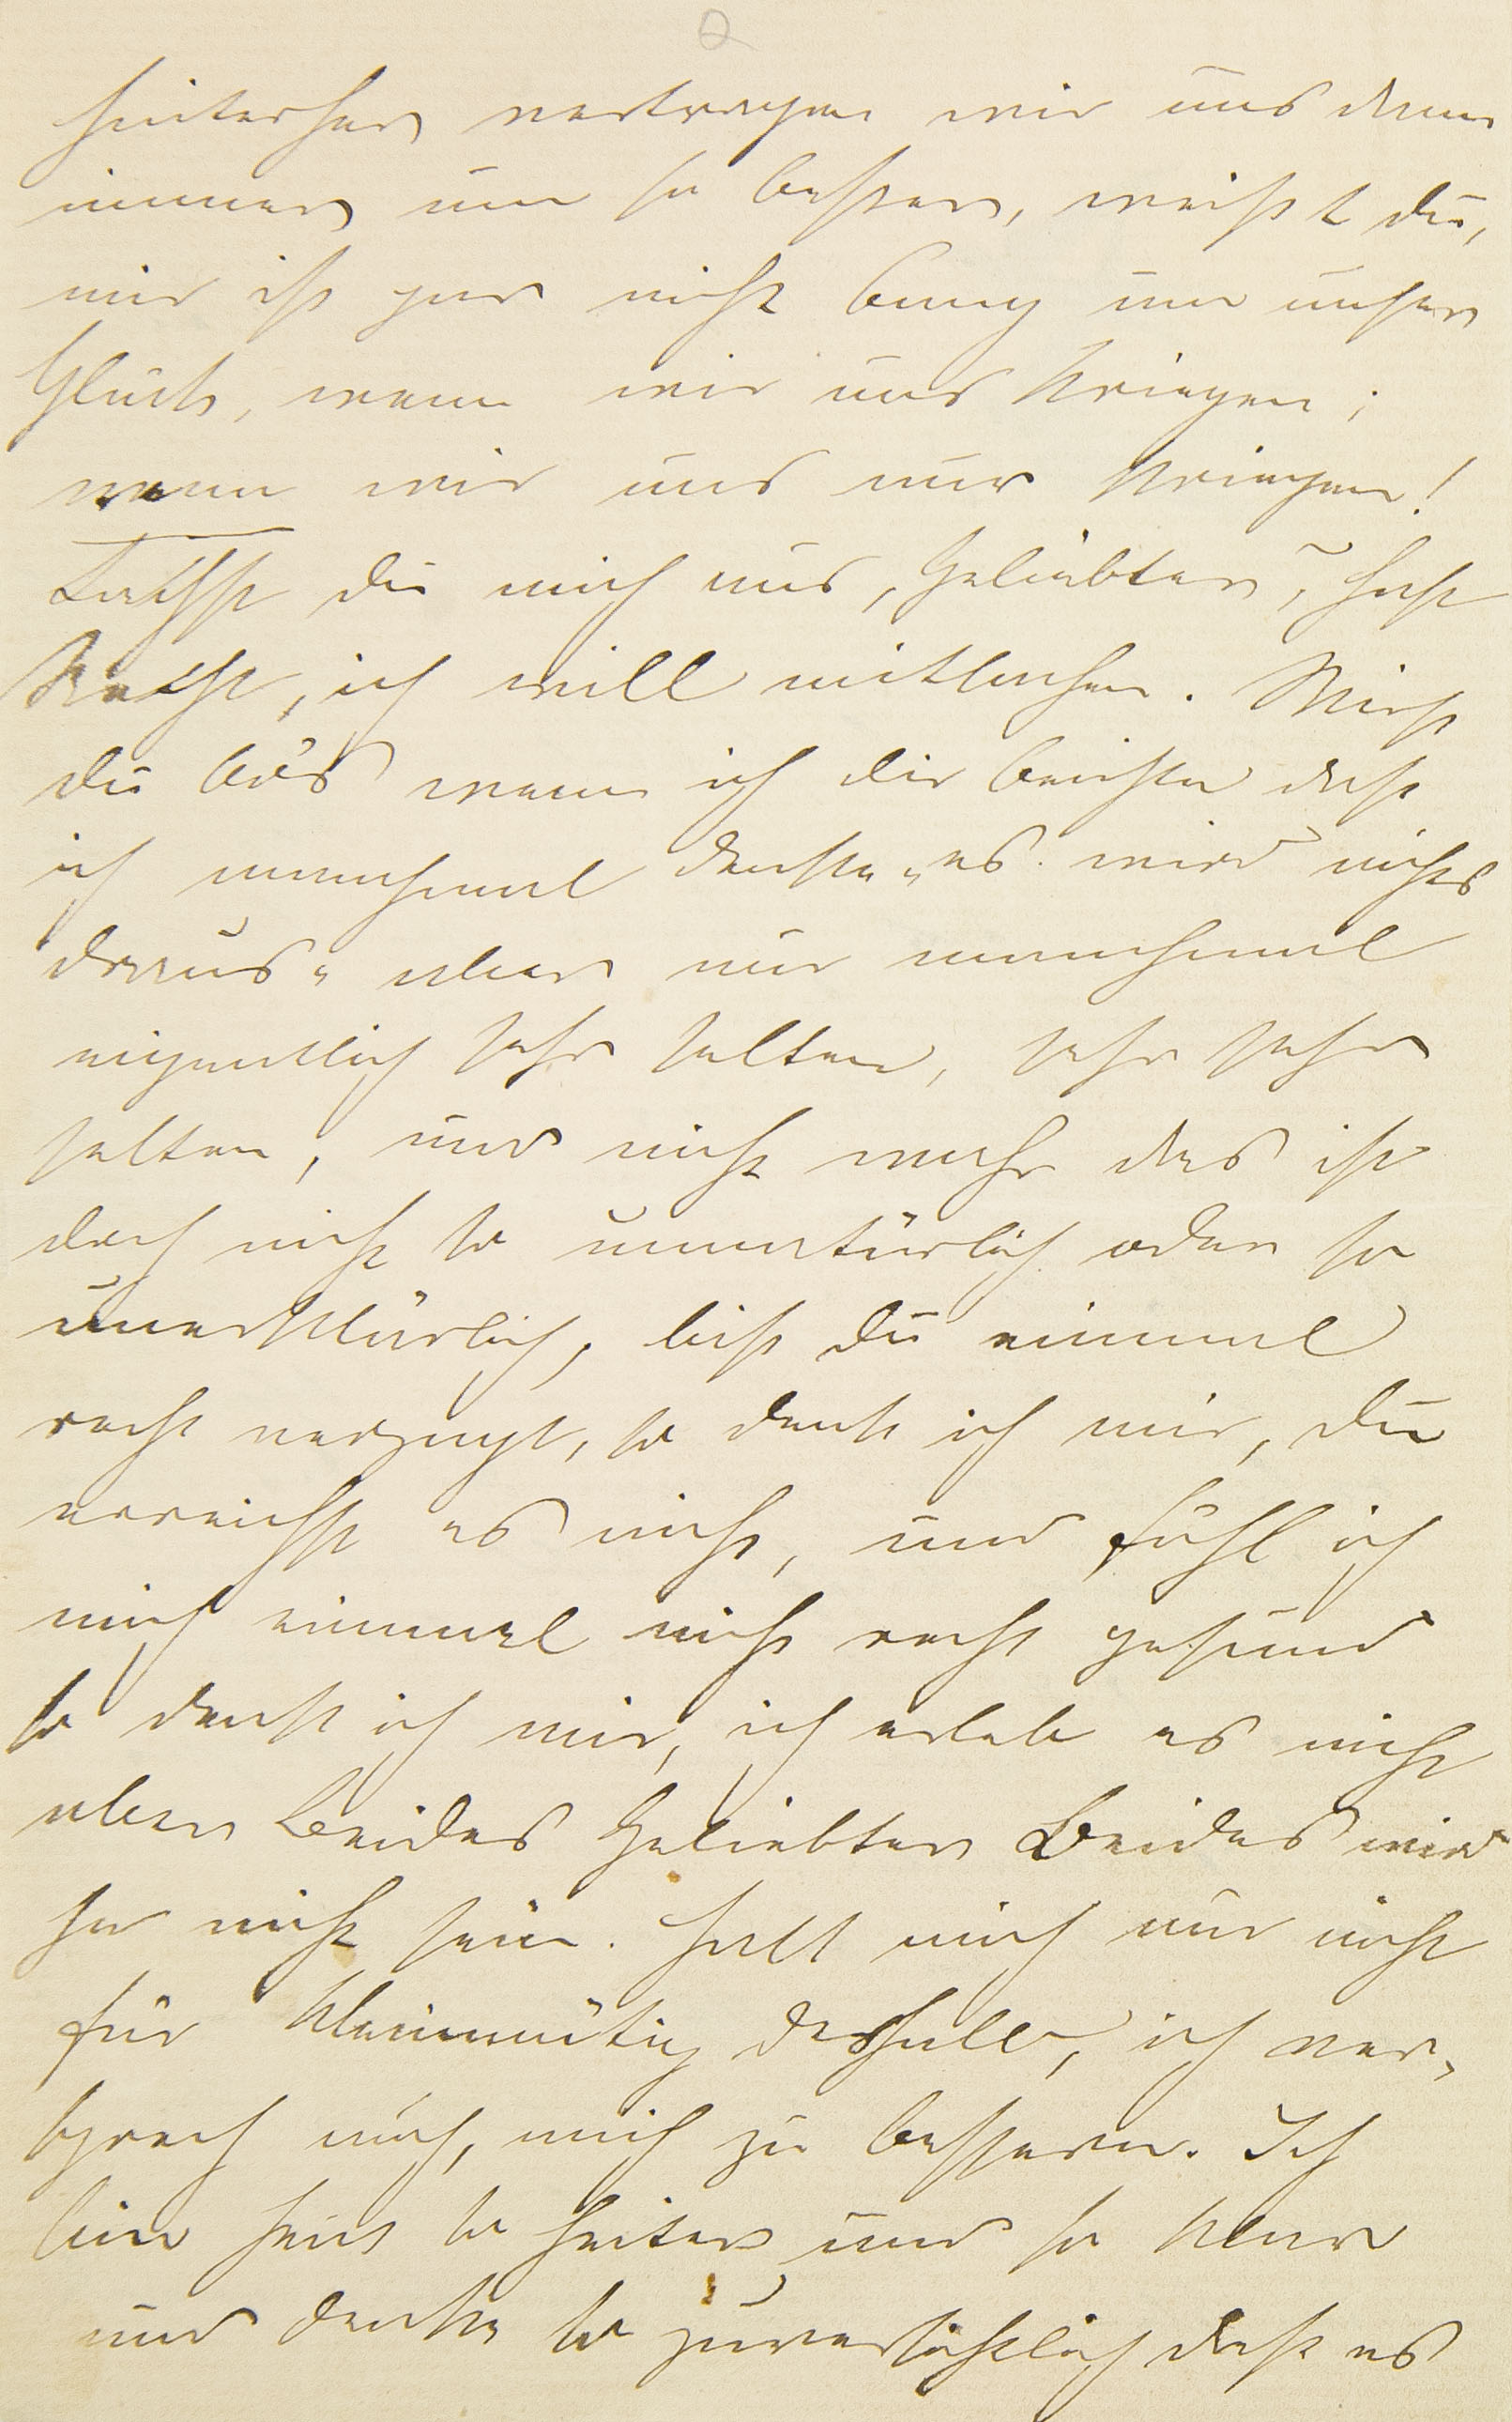 hinterher vertragen wir uns dann
immer um so besser, weißt du,
mir ist gar nicht bang um unser
Glück, wenn wir uns kriegen;
wenn wir uns nur kriegen!
Lachst du mich aus, Geliebter, hast
Recht, ich will mitlachen. Wirst
du bös wenn ich dir beichte daß
ich manchmal denke „es wird nichts
draus" aber nur manchmal
eigentlich sehr selten, sehr sehr
selten, und nicht wahr das ist
doch nicht so unnatürlich oder so
unerklärlich, bist du einmal
recht verzagt, so denk ich mir, du
erreichst es nicht, und fühl ich
mich einmal nicht recht gesund
so denk ich mir, ich erleb es nicht
aber Beides Geliebter Beides wird
ja nicht sein. Halt mich nur nicht
für kleinmütig deshalb, ich ver-
sprech auch, mich zu bessern. Ich
bin heut so heiter und so klar
und denke so zuversichtlich daß es